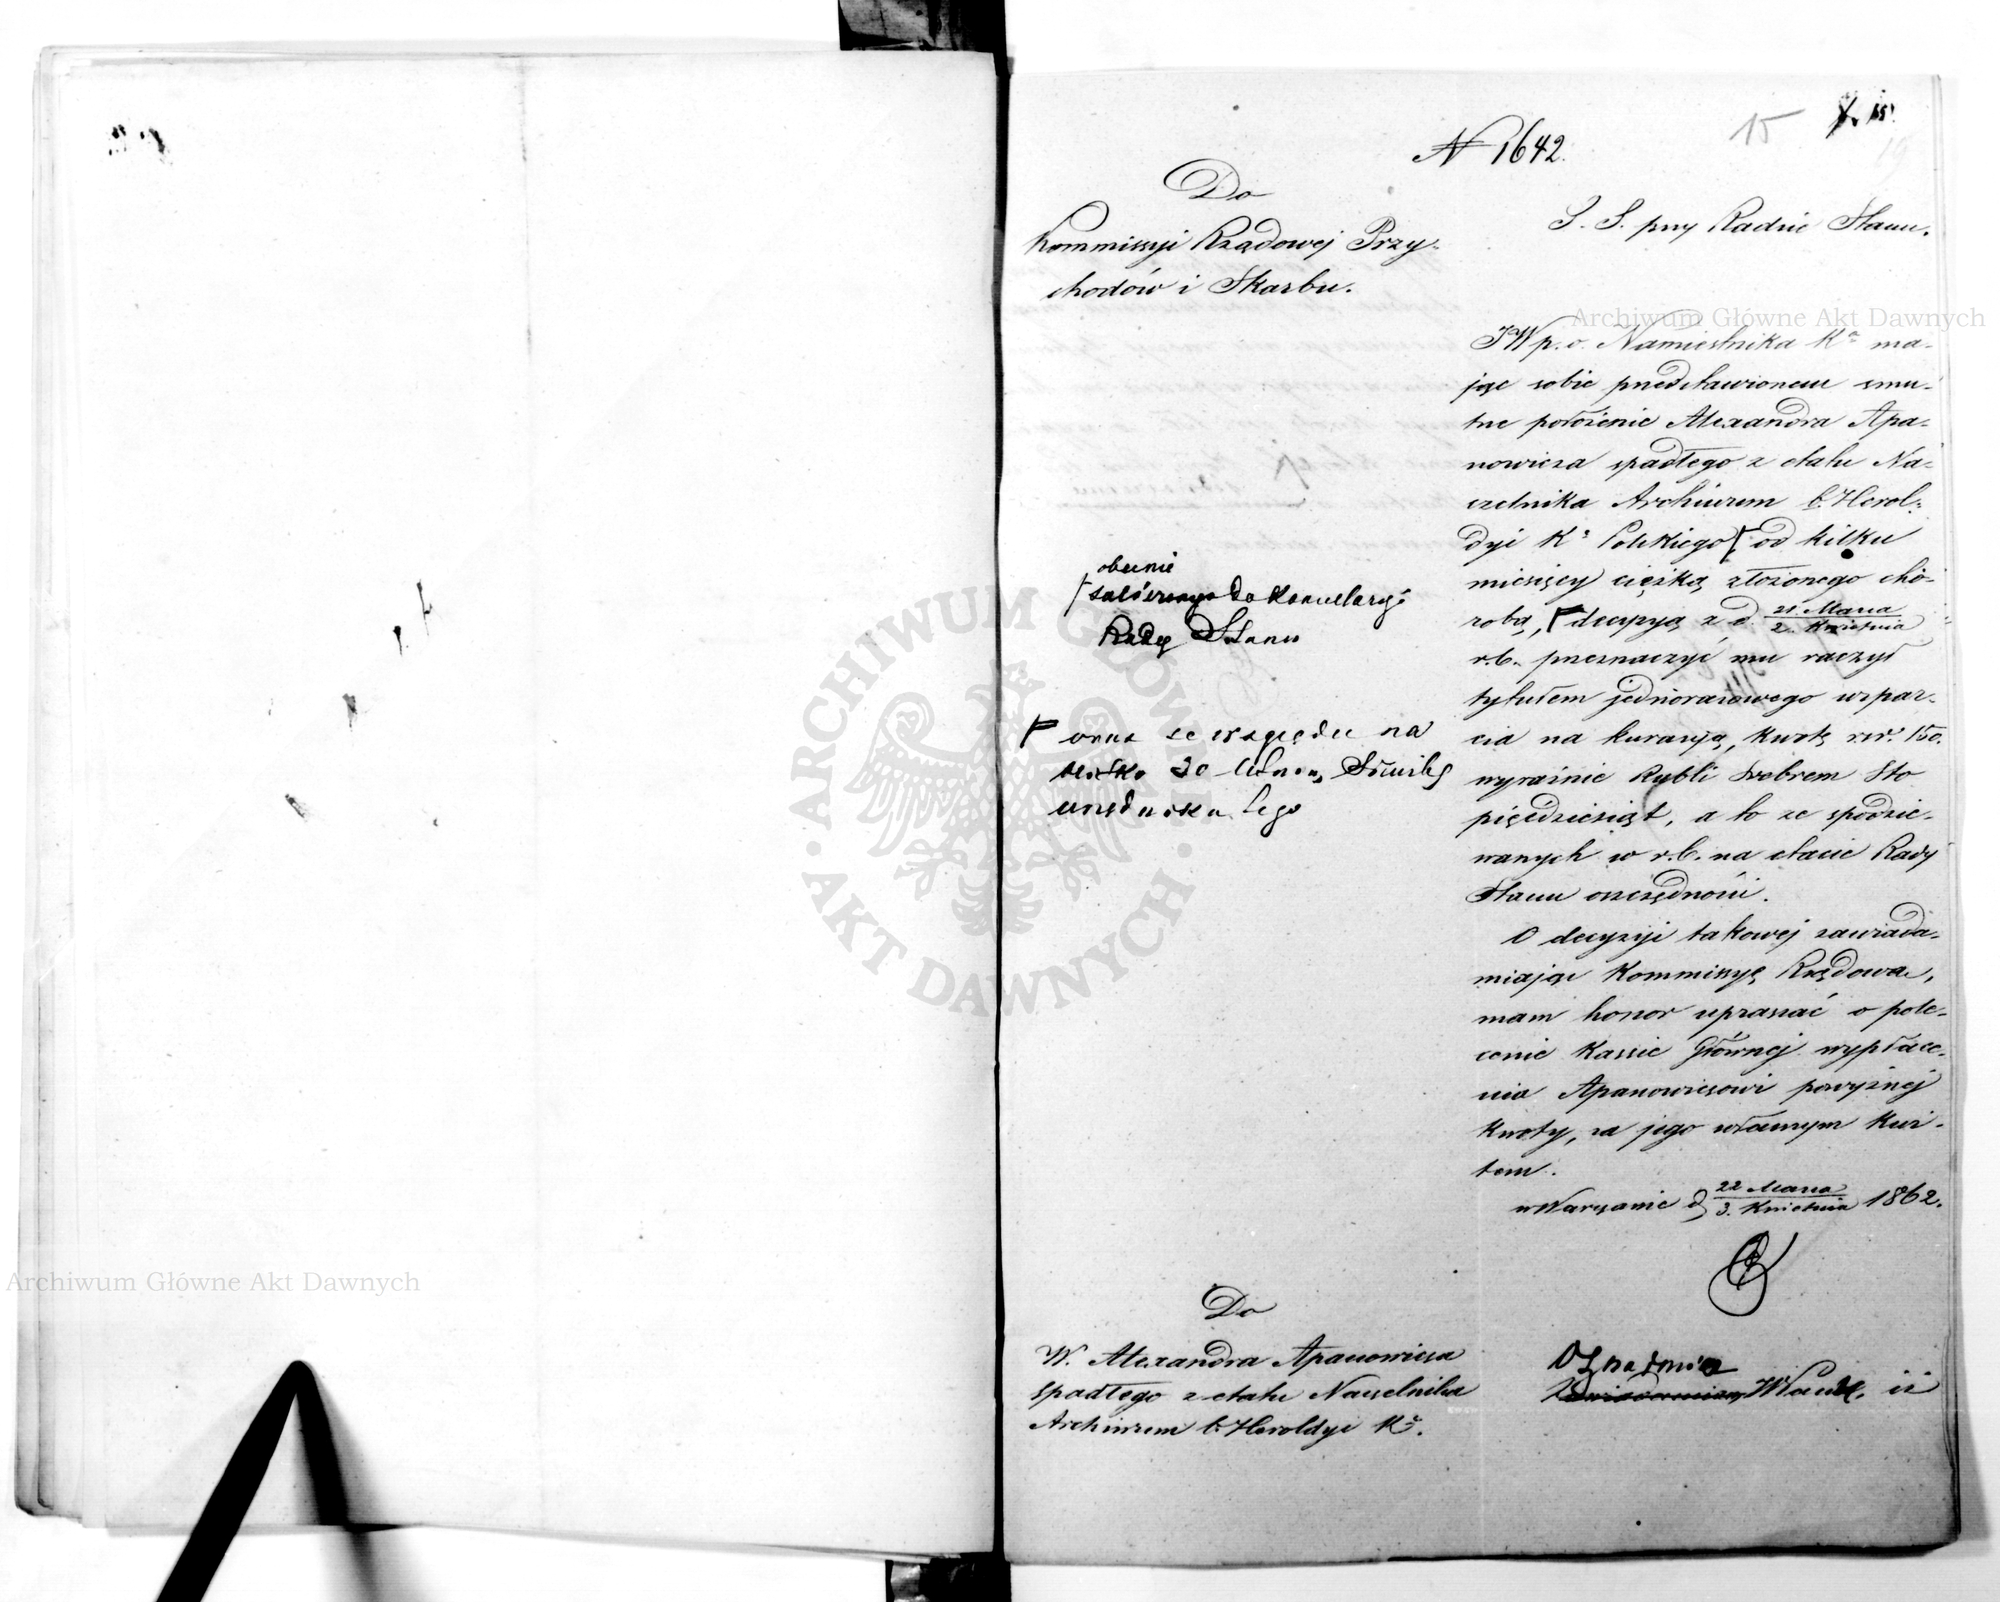 15
N 1642.
Do
Kommissyi Rządowej Przy-
chodów i Skarbu.
S. S. przy Radzie Stanu.
JW p. o. Namiestnika Kr. ma-
jąc sobie przedstawionem smu-
tne położenie Alexandra Apa-
nowicza spadłego z etatu Na-
czelnika Archiwum b. Herol-
dyi Kr. Polskiego od kilku
miesięcy ciężką złożonego cho-
robą, decyzyą z d. 21. Marca / 2. Kwietnia
r. b. przeznaczyć mu raczył
tytułem jednorazowego wspar-
cia na kuracyą, kwotę rsr. 150.
wyraźnie Rubli srebrem sto
pięćdziesiąt, a to ze spodzie-
wanych w r. b. na etacie Rady
Stanu oszczędności.
obecnie
do Kancellaryi
Rady Stanu
oraz ze względu na
blisko 30 letnią służbę
urzędnika tego
O decyzyi takowej zawiada-
miając Kommissyę Rządową,
mam honor upraszać o pole-
cenie Kassie Głównej wypłace-
nia Apanowiczowi powyższej
kwoty, za jego własnym kwi-
tem.
w Warszawie d. 22 Marca / 3. Kwietnia 1862.
Do
W. Alexandra Apanowicza
spadłego z etatu Naczelnika
Archiwum b. Heroldyi Kr.
Oznajmia
Zawiadamiam W Panu, iż
Archiwum Główne Akt Dawnych
Archiwum Główne Akt Dawnych
ARCHIWUM GŁÓWNE · AKT DAWNYCH ·